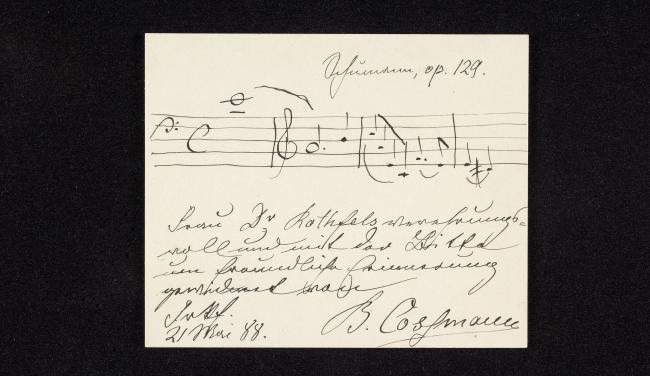 Schumann, op. 129.
Frau Dr Rothfels verehrungs-
voll und mit der Bitte
um freundliche Erinnerung
gewidmet von
Frkf.
21 Mai 88. B. Cossmann